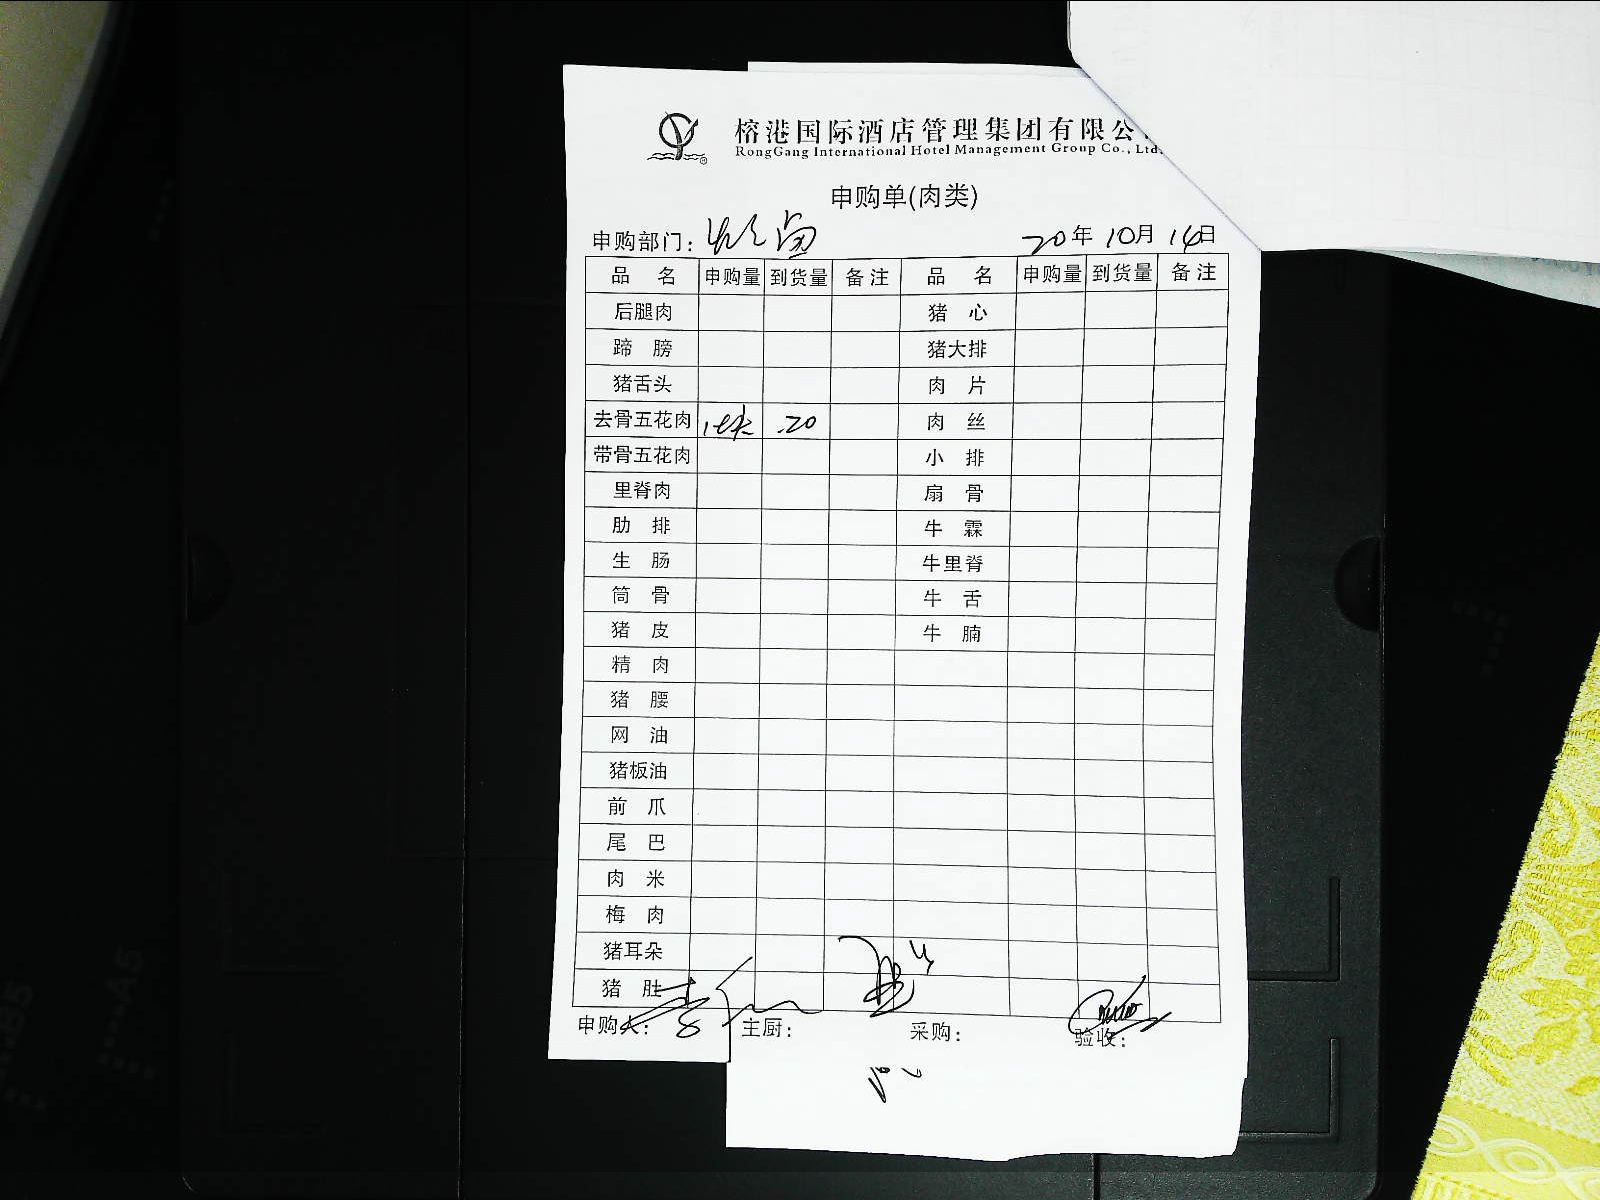 榕港国际酒店管理集团有限公
RongGang International Hotel Management Group Co., Ltd.
申购单(肉类)
申购部门: 20年 10月 14日
品 名 申购量 到货量 备注 品 名 申购量 到货量 备注
后腿肉 猪 心
蹄 膀 猪大排
猪舌头 肉 片
去骨五花肉 20 肉 丝
带骨五花肉 小 排
里脊肉 扇 骨
肋 排 牛 霖
生 肠 牛里脊
筒 骨 牛 舌
猪 皮 牛 腩
精 肉
猪 腰
网 油
猪板油
前 爪
尾 巴
肉 米
梅 肉
猪耳朵
猪 肚
申购人: 主厨: 采购: 验收: